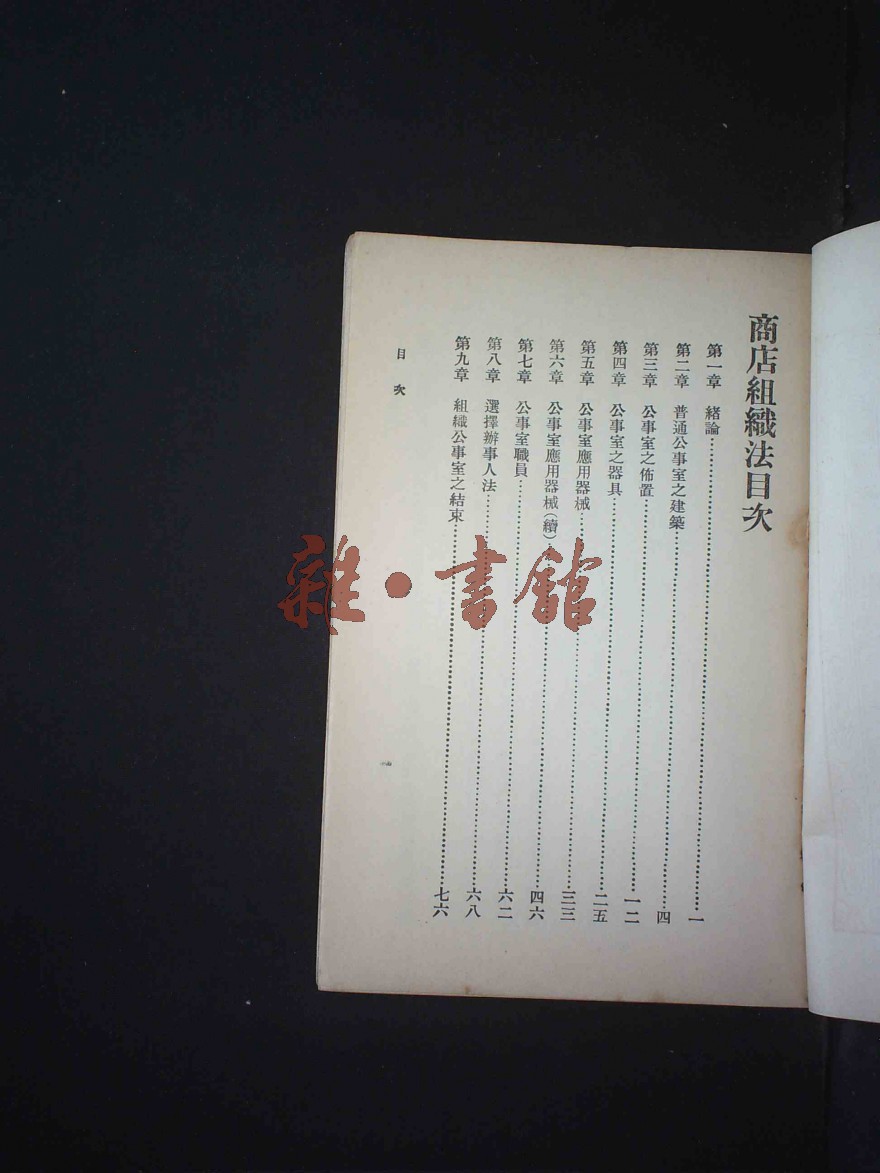 商店組織法目次
第一章 緒論⋯⋯⋯⋯一
第二章 普通公事室之建築⋯⋯⋯⋯四
第三章 公事室之佈置⋯⋯⋯⋯一二
第四章 公事室之器具⋯⋯⋯⋯二五
第五章 公事室應用器械⋯⋯⋯⋯三三
第六章 公事室應用器械(續)⋯⋯⋯⋯四六
第七章 公事室職員⋯⋯⋯⋯六二
第八章 選擇辦事人法⋯⋯⋯⋯六八
第九章 組織公事室之結束⋯⋯⋯⋯七六
目次
一
雜·書館